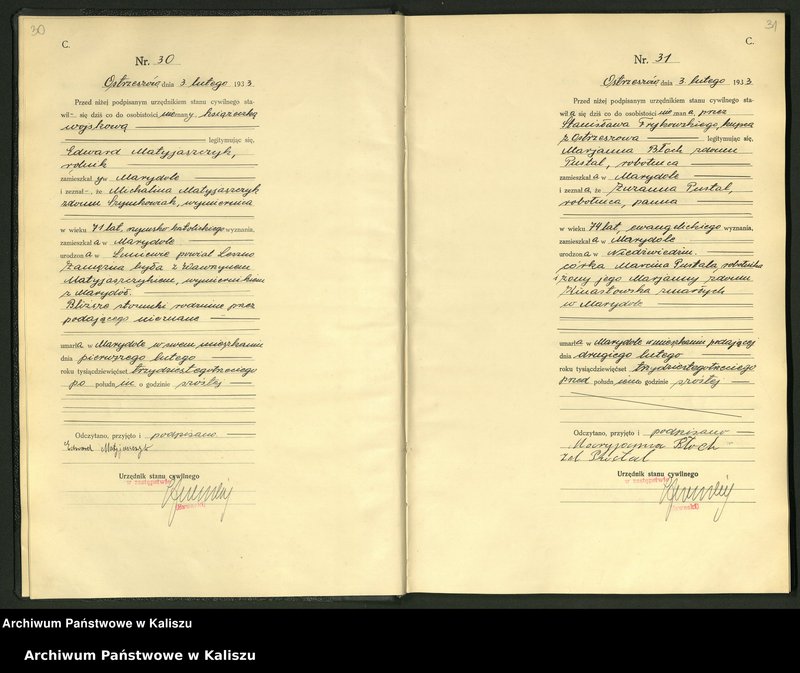 30
C.
Nr. 30
Ostrzeszów dnia 3 lutego 1933
Przed niżej podpisanym urzędnikiem stanu cywilnego sta-
wił - się dziś co do osobistości nieznany, książeczką
wojskową
legitymując się,
Edward Matyjaszczyk,
rolnik
zamieszkały w Marydole
i zeznał -, że Michalina Matyjaszczyk
zdomu Szymkowiak, wymiernica
w wieku 71 lat, rzymsko katolickiego wyznania,
zamieszkała w Marydole
urodzona w powiat Leszno
Zamężna była z Wawrzynem
Matyjaszczykiem, wymiernikiem
z Marydół.
Bliższe stosunki rodzinne przez
podającego nieznane
umarła w Marydole w swem mieszkaniu
dnia pierwszego lutego
roku tysiącdziewięćset trzydziestegotrzeciego
po południu o godzinie szóstej
Odczytano, przyjęto i podpisano
Edward Matyjaszczyk
Urzędnik stanu cywilnego
w zastępstwie
31
C.
Nr. 31
Ostrzeszów dnia 3 lutego 1933
Przed niżej podpisanym urzędnikiem stanu cywilnego sta-
wiła się dziś co do osobistości nieznana, przez
Stanisława Frykowskiego, kupca
z Ostrzeszowa legitymując się,
Marjanna Błoch zdomu
Pustal, robotnica
zamieszkała w Marydole
i zeznała, że Zuzanna Pustal,
robotnica, panna
w wieku 74 lat, ewangelickiego wyznania,
zamieszkała w Marydole
urodzona w Niedźwiedziu.
córka Marcina Pustala, robotnika
i żony jego Marjanny zdomu
zmarłych
w Marydole
umarła w Marydole w mieszkaniu podającej
dnia drugiego lutego
roku tysiącdziewięćset trzydziestegotrzeciego
przed południem o godzinie szóstej
Odczytano, przyjęto i podpisano
Maryjanna Błoch
zd Pustal
Urzędnik stanu cywilnego
w zastępstwie
Archiwum Państwowe w Kaliszu
Archiwum Państwowe w Kaliszu